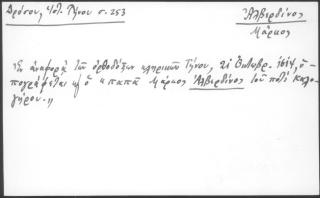 Δρόσου, Ἱστ. Τήνου σ. 253
Ἀλβερδίνος
Μάρκος
"Ἐν ἀναφορᾷ τῶν ὀρθοδόξων κληρικῶν Τήνου, 21 Ὀκτωβρ. 1614, ὑ-
πογράφεται κ ὁ παπᾶ Μάρκος Ἀλβερδίνος τοῦ ποτὲ Καλο-
γήρου."